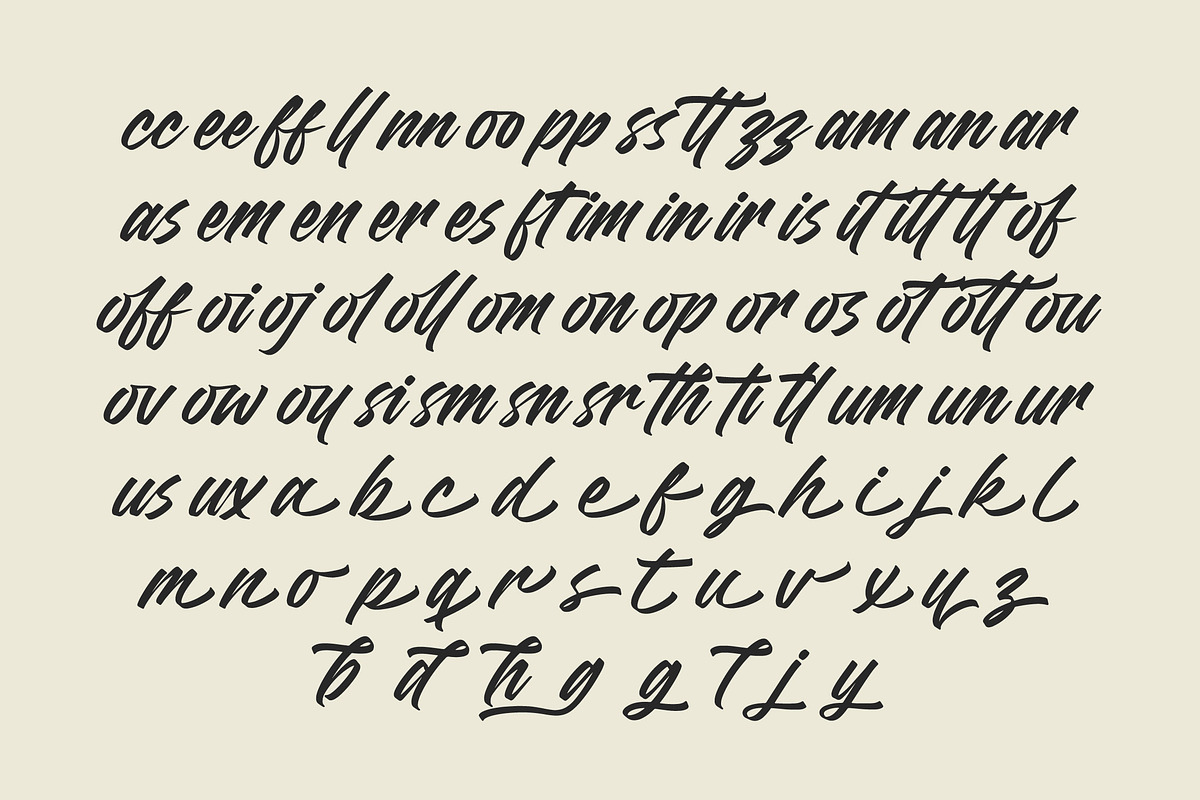 cc ee ff ll nn oo pp ss tt zz am an ar
as em en er es ft im in ir is it itt lt of
off oi oj ol oll om on op or os ot ott ou
ov ow oy si sm sn sr th ti tl um un ur
us ux a b c d e f g h i j k l
m n o p q r s t u v x y z
b d h g g l j y